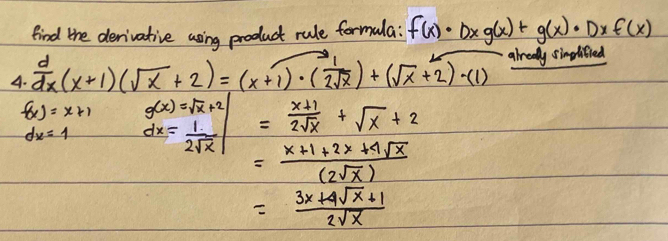 find the derivative using product rule formula: f(x) · Dx g(x) + g(x) · Dx f(x)
4. d/dx (x+1)(√x + 2) = (x+1) · (1/2√x) + (√x + 2) · (1) already simplified
f(x) = x+1 g(x) = √x + 2 = x+1/2√x + √x + 2
dx = 1 dx = 1/2√x
= x+1+2x+4√x/(2√x)
= 3x+4√x+1/2√x